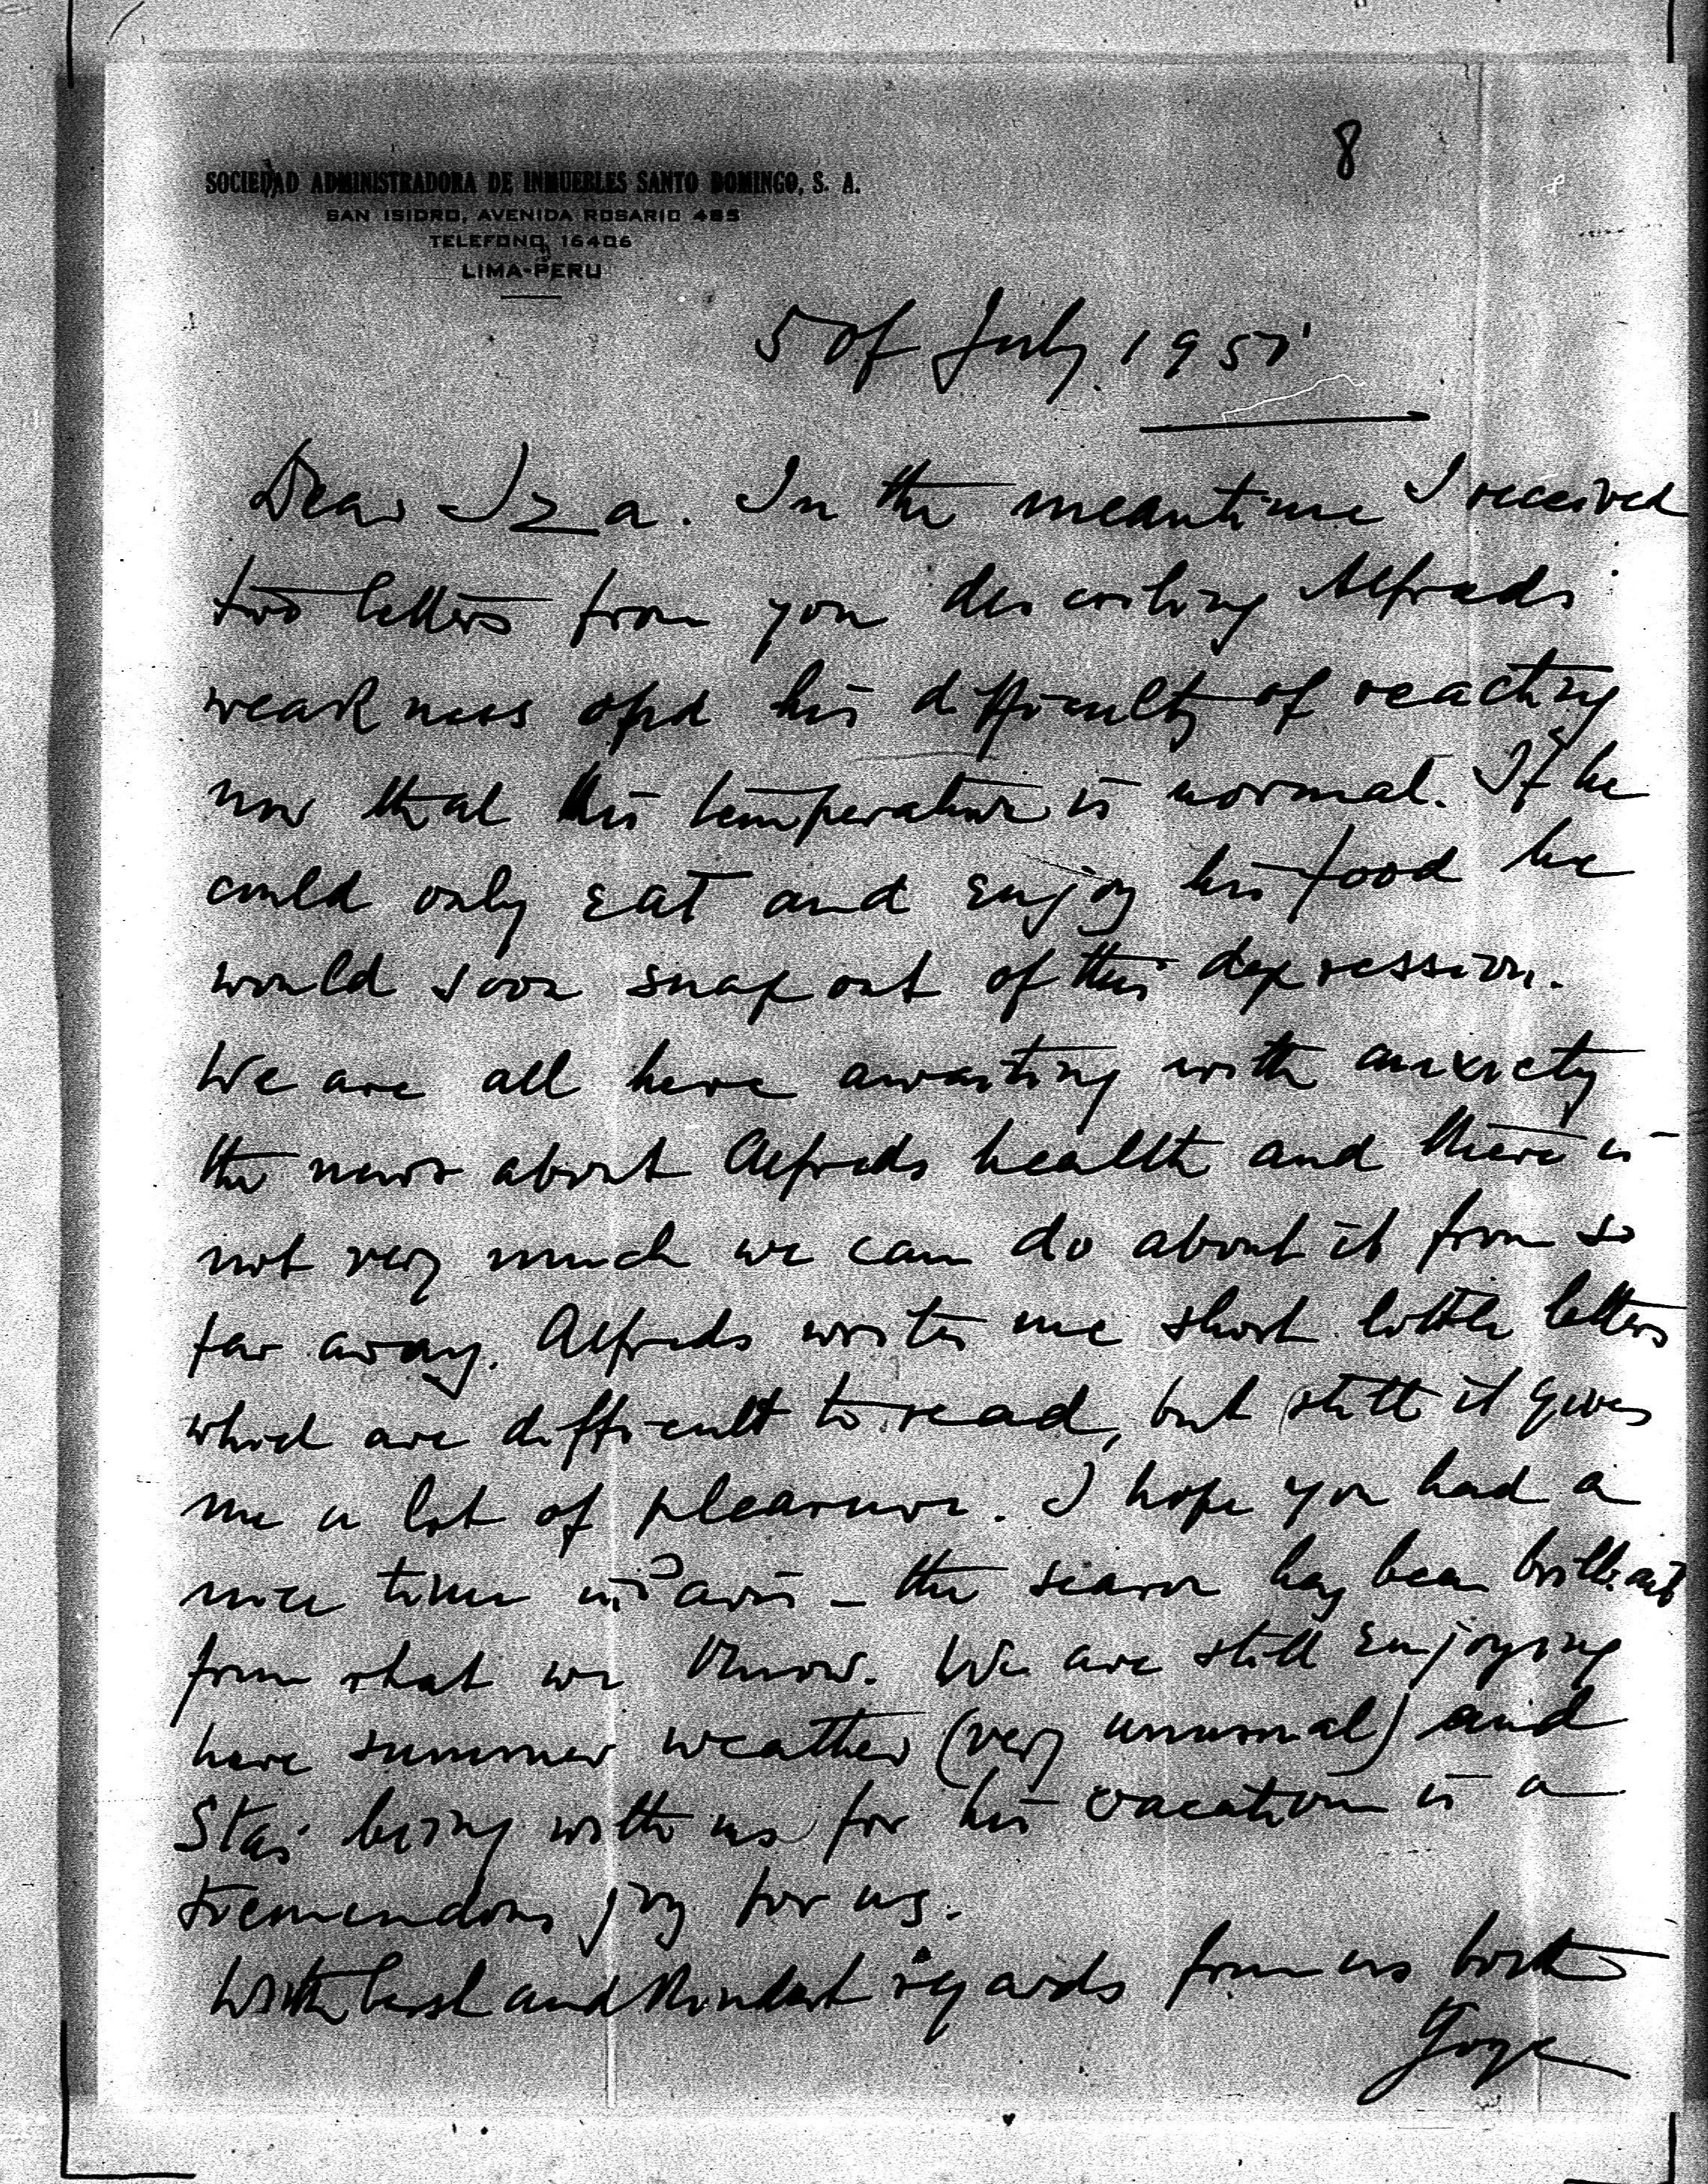 8
SOCIEDAD ADMINISTRADORA DE INMUEBLES SANTO DOMINGO, S. A.
SAN ISIDRO, AVENIDA ROSARIO 485
TELEFONO, 16406
LIMA-PERU
5 of July. 1951
Dear Iza. In the meantime I received
two letters from you describing Alfreds
weakness and his difficulty of reacting
now that his temperature is normal. If he
could only eat and enjoy his food he
would soon snap out of this depression.
We are all here awaiting with anxiety
the news about Alfreds health and there is
not very much we can do about it from so
far away. Alfreds writes me short little letters
which are difficult to read, but still it gives
me a lot of pleasure. I hope you had a
nice time in Paris - the season has been brilliant
from what we know. We are still enjoying
here summer weather (very unusual) and
Stas being with us for his vacation is a
tremendous joy for us.
With best and kindest regards from us both